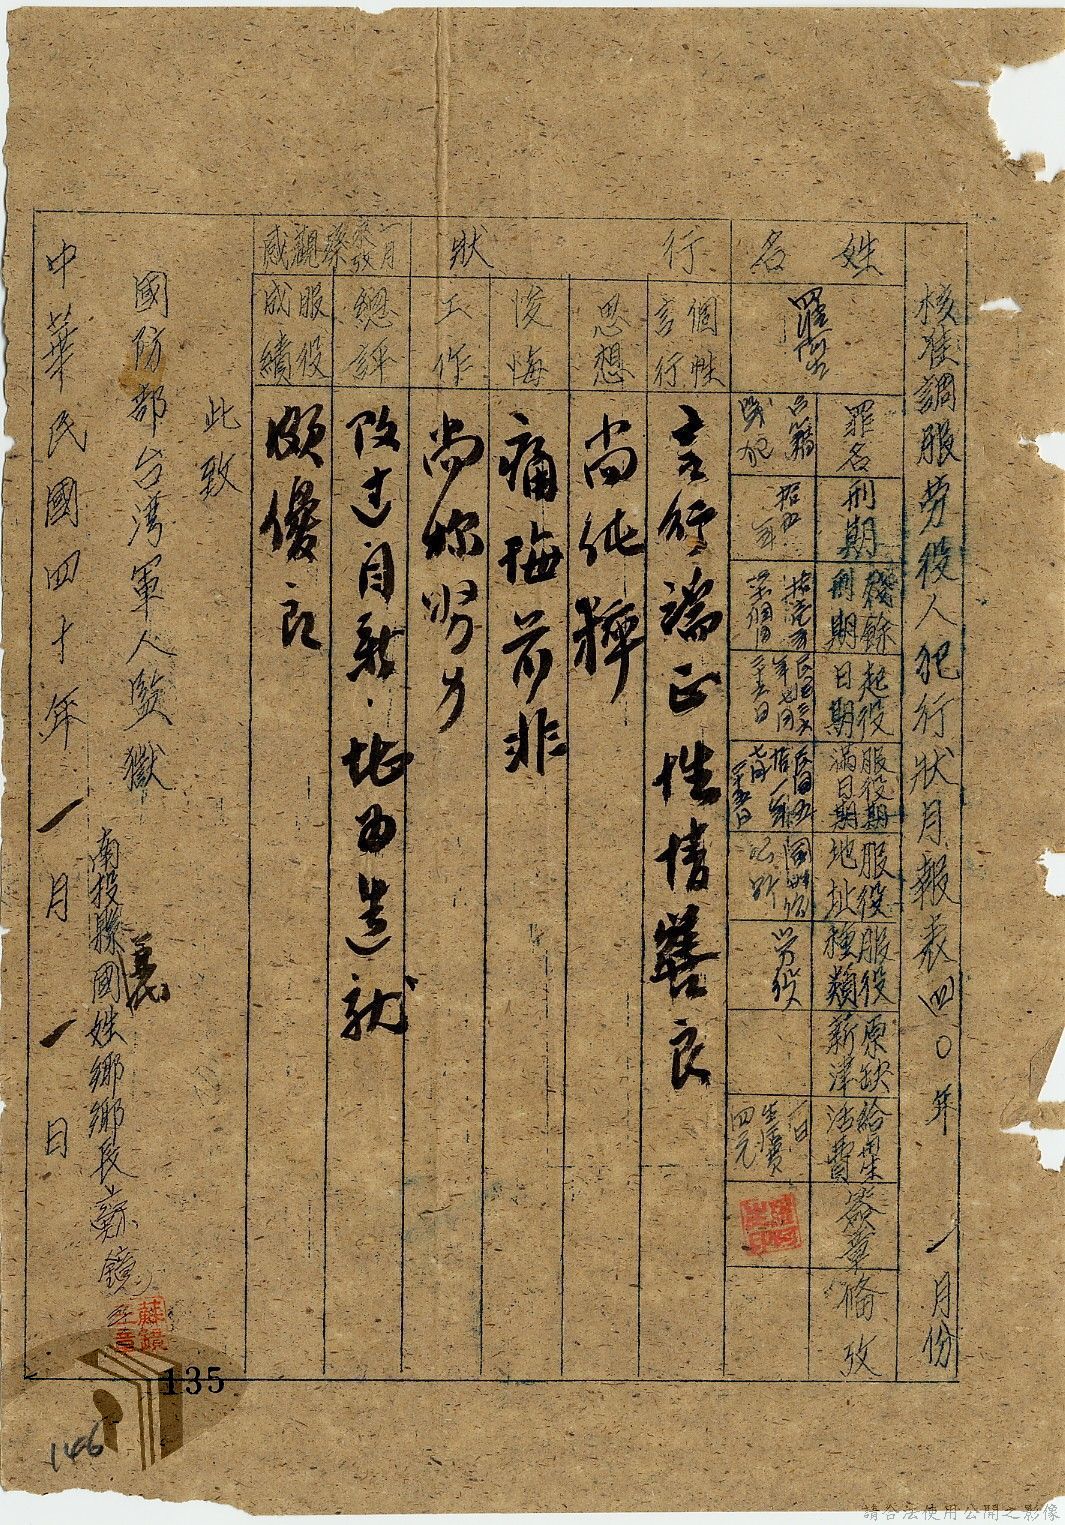 核准調服勞役人犯行狀月報表四〇年一月份
姓名
罪名
刑期
殘餘刑期
起役日期
服役期滿日期
服役地址
服役種類
原缺薪津
給用生活費
簽章
備攷
台籍
戰犯
拾五年
勞役
一日
生活費
四元
行狀
個性言行
言行端正性情善良
思想
尚純粹
悛悔
痛悔前非
工作
尚称努力
一月
總評
改过自新.堪为造就
服役成績
頗優良
此致
國防部台湾軍人監獄
南投縣國姓鄉鄉長蘇鏡
中華民國四十年一月一日
135
146
請合法使用公開之影像